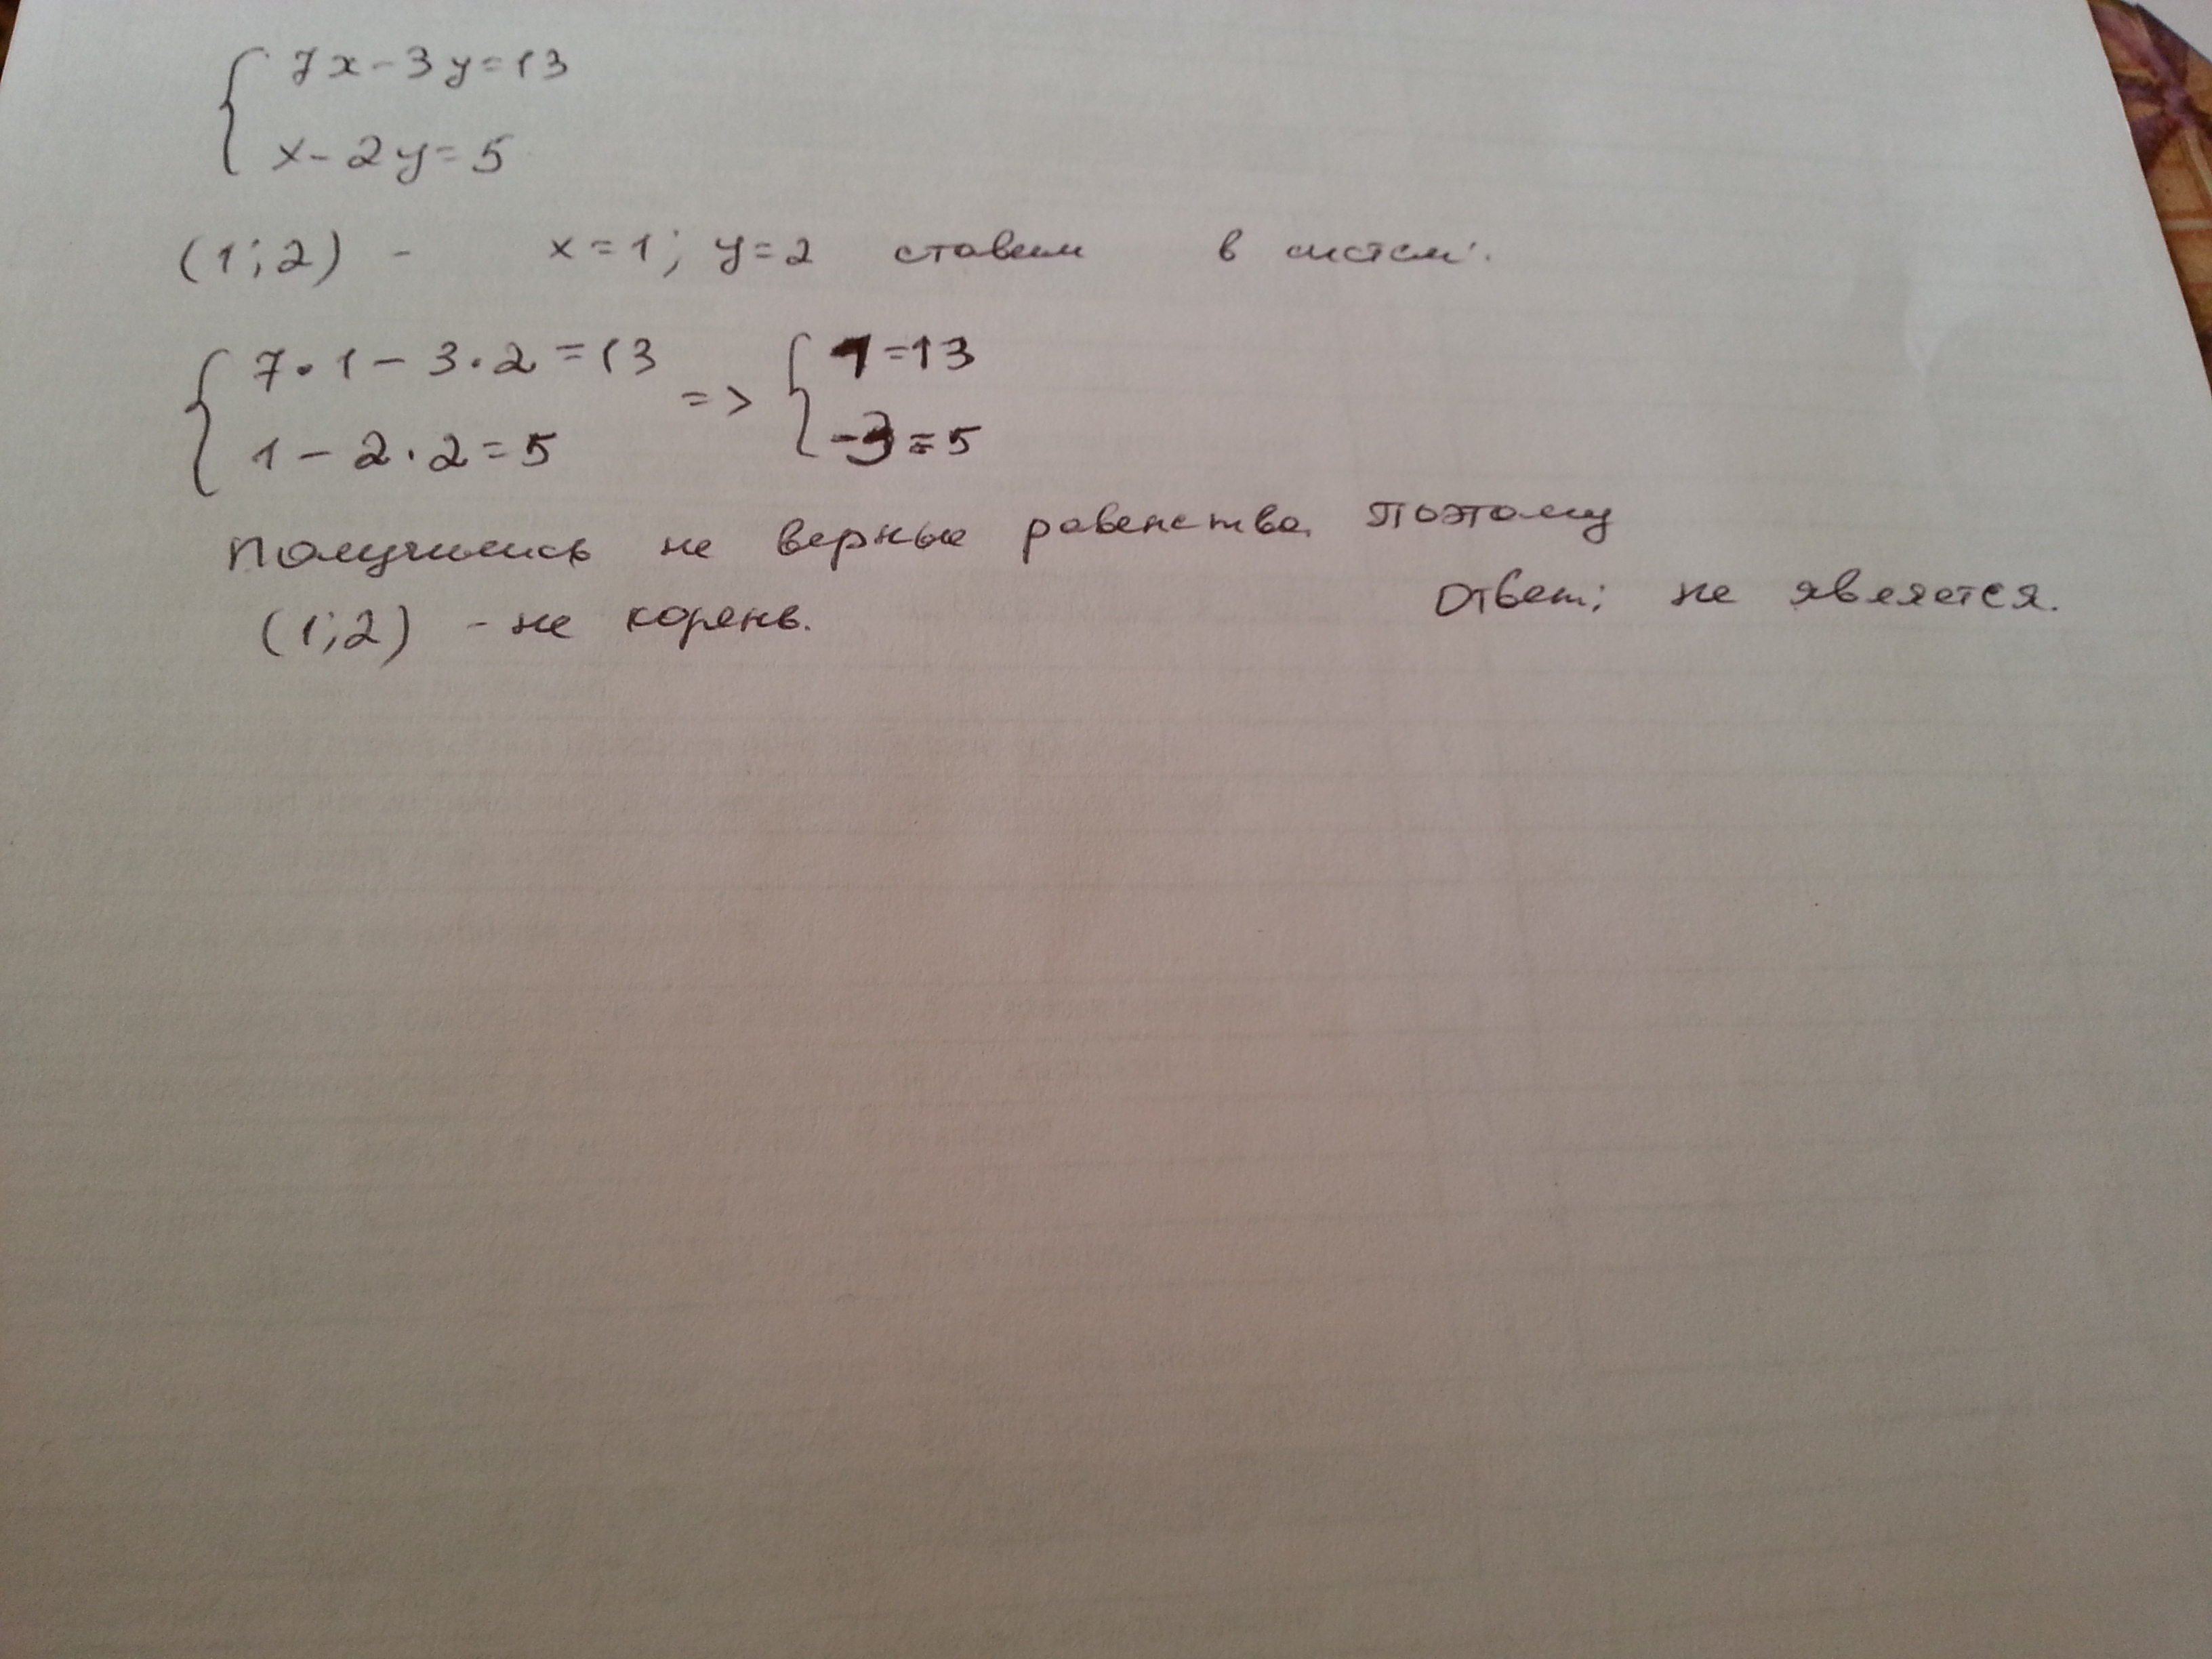 { 7x - 3y = 13
x - 2y = 5
(1; 2) - x = 1; y = 2 ставим в
{ 7 · 1 - 3 · 2 = 13 => { 1 = 13
1 - 2 · 2 = 5 -3 = 5
Получились не верные равенства. Поэтому
(1; 2) - не корень. Ответ: не является.